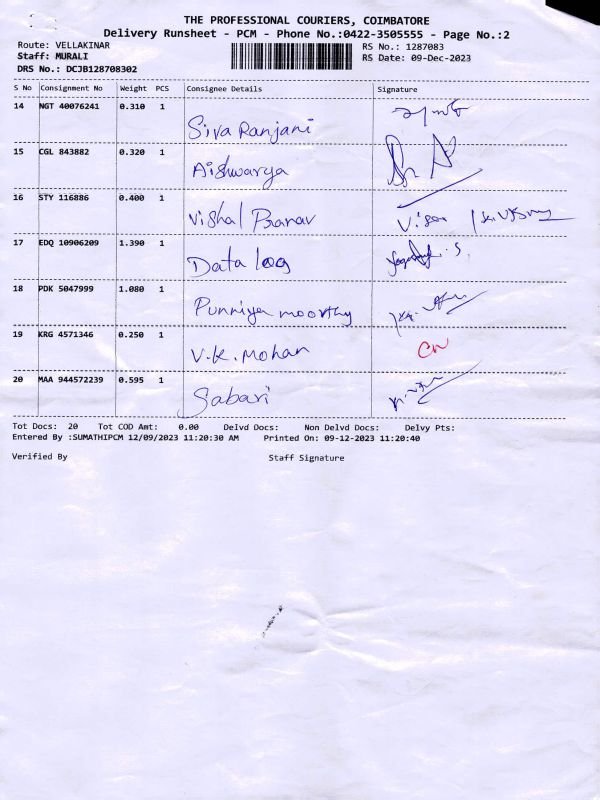 THE PROFESSIONAL COURIERS, COIMBATORE
Delivery Runsheet - PCM - Phone No.:0422-3505555 - Page No.:2
Route: VELLAKINAR RS No.: 1287083
Staff: MURALI RS Date: 09-Dec-2023
DRS No.: DCJB128708302
S No Consignment No Weight PCS Consignee Details Signature
14 NGT 40076241 0.310 1
Siva Ranjani
15 CGL 843882 0.320 1
Aishwarya
16 STY 116886 0.400 1
Vishal Pranav
17 EDQ 10906209 1.390 1
Data log
18 PDK 5047999 1.080 1
Punniya moorthy
19 KRG 4571346 0.250 1
V.K. Mohan CN
20 MAA 944572239 0.595 1
Sabari
Tot Docs: 20 Tot COD Amt: 0.00 Delvd Docs: Non Delvd Docs: Delvy Pts:
Entered By :SUMATHIPCM 12/09/2023 11:20:30 AM Printed On: 09-12-2023 11:20:40
Verified By Staff Signature